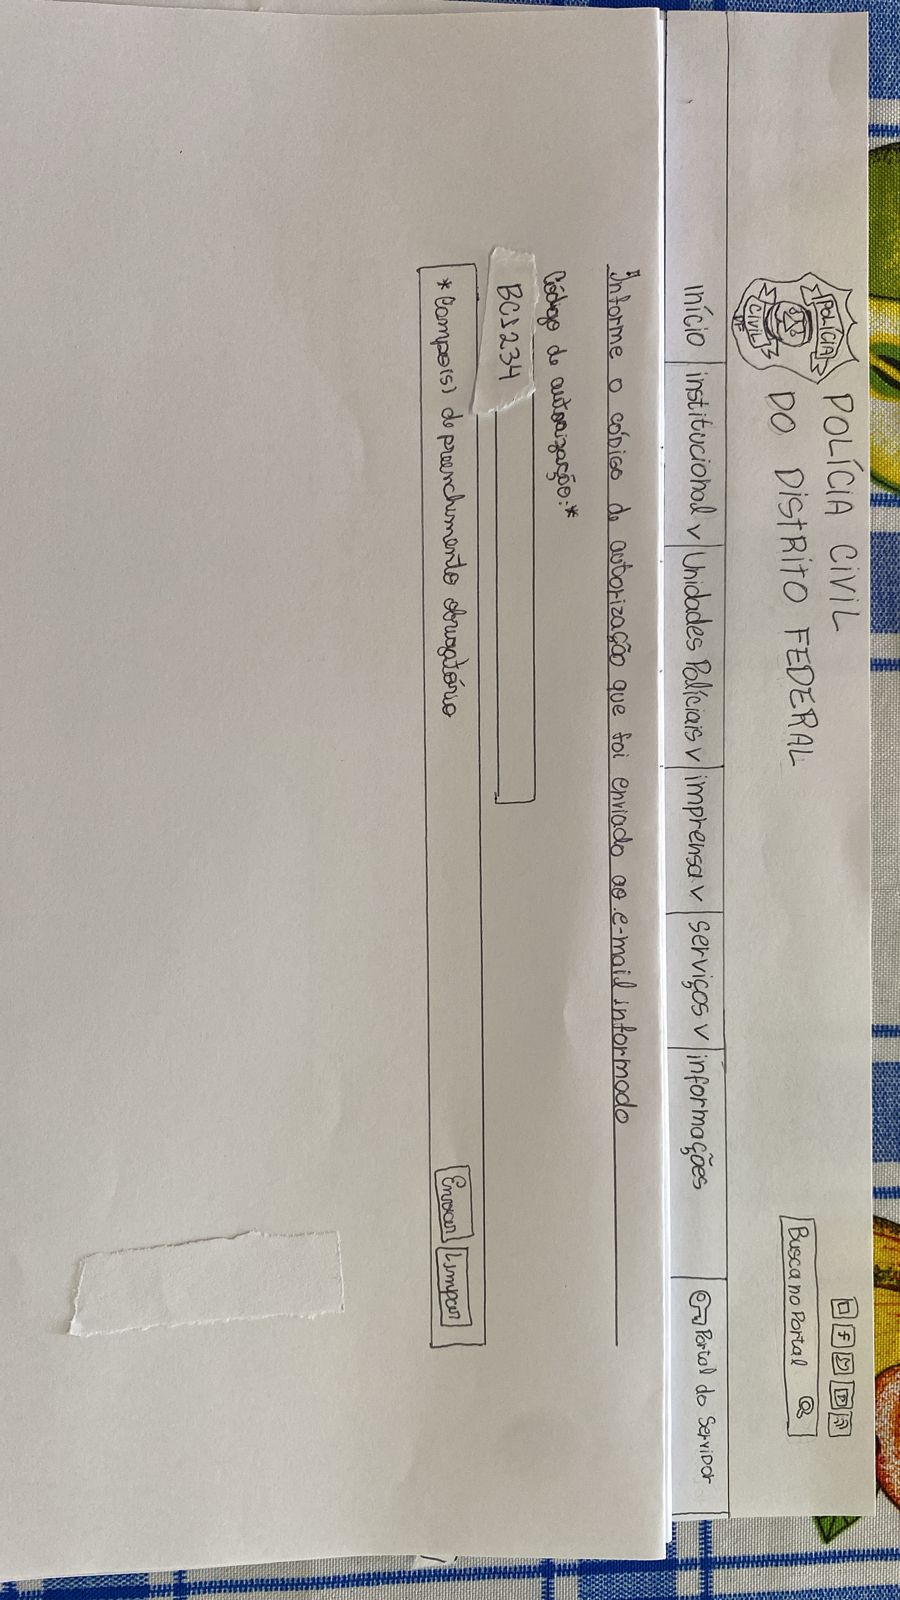 POLÍCIA
CIVIL
DF
POLÍCIA CIVIL
DO DISTRITO FEDERAL
Busca no Portal
início institucional v Unidades Policiais v imprensa v serviços v informações Portal do Servidor
Informe o código de autorização que foi enviado ao e-mail informado
Código de autorização:*
BC1234
*Campo(s) de preenchimento obrigatório
Enviar Limpar